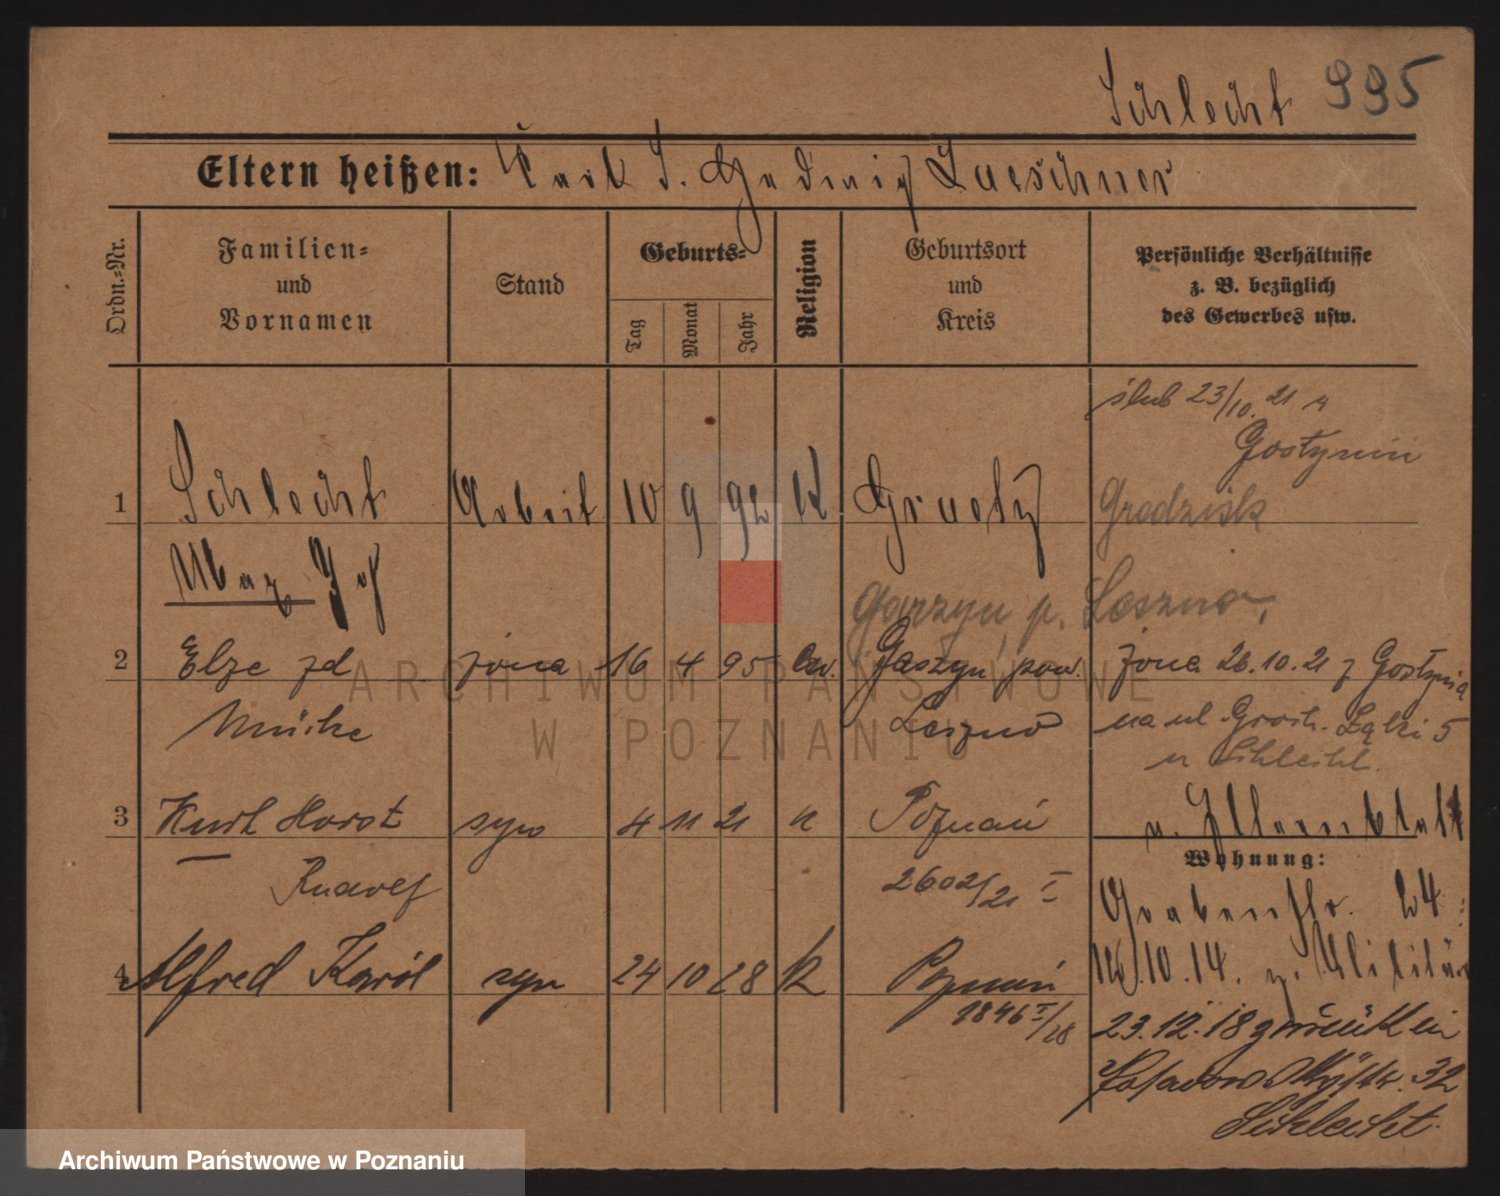 Schlecht 995
Eltern heißen: Karl u. Hedwig Laeschner
Ordn.-Nr.
Familien-
und
Vornamen
Stand
Geburts-
Tag
Monat
Jahr
Religion
Geburtsort
und
Kreis
Persönliche Verhältnisse
z. B. bezüglich
des Gewerbes usw.
ślub 23/10. 21 w
Gostyniu
1 Schlecht Arbeit 10 9 92 K Graetz Grodzisk
Max
Garzyn, p. Leszno,
2 Elze zd żona 16 4 95 ew. Garzyn pow. żona 26.10.21 z Gostynia
Leszno na ul. Grosh. Łąki 5
u Schlecht.
3 Kurt Horst syn 4 11 21 K Poznań u. Elternblatt
Wohnung:
2602/21 I
Grabenstr. 24
4 Alfred Karol syn 24 10 28 K Poznań 10.14. z. Militär
1846 I/28
23.12.18 zurück in
Posadowskystr. 32
Schlecht.
ARCHIWUM PAŃSTWOWE
W POZNANIU
Archiwum Państwowe w Poznaniu